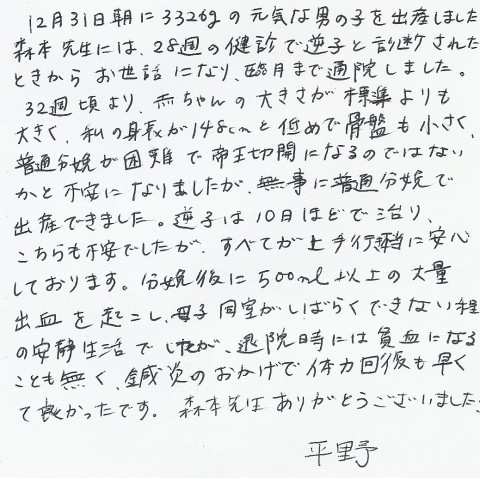 12月31日朝に3326gの元気な男の子を出産しました
森本先生には、28週の健診で逆子と診断された
ときからお世話になり、臨月まで通院しました。
32週頃より、赤ちゃんの大きさが標準よりも
大きく、私の身長が148cmと低めで骨盤も小さく、
普通分娩が困難で帝王切開になるのではない
かと不安になりましたが、無事に普通分娩で
出産できました。逆子は10日ほどで治り、
こちらも不安でしたが、すべてが上手行き特に安心
しております。分娩後に500ml以上の大量
出血を起こし、母子同室がしばらくできない程
の安静生活でしたが、退院時には貧血になる
ことも無く、鍼灸のおかげで体力回復も早く
て良かったです。森本先生ありがとうございました。
平野